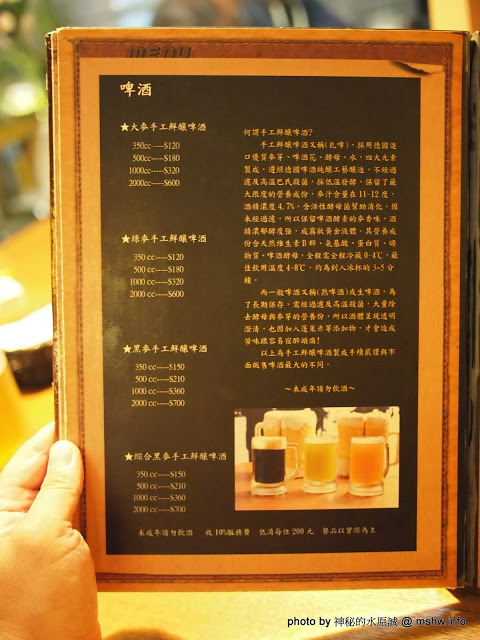 MENU
啤酒
★大麥手工鮮釀啤酒
350cc-----$120
500cc-----$180
1000cc-----$320
2000cc-----$600
★綠麥手工鮮釀啤酒
350 cc-----$120
500 cc-----$180
1000 cc-----$320
2000 cc-----$600
★黑麥手工鮮釀啤酒
350 cc-----$150
500 cc-----$210
1000 cc-----$360
2000 cc-----$700
★綜合黑麥手工鮮釀啤酒
350 cc-----$150
500 cc-----$210
1000 cc-----$360
2000 cc-----$700
何謂手工鮮釀啤酒?
手工鮮釀啤酒又稱(扎啤)，採用德國進
口優質麥芽、啤酒花、酵母、水，四大元素
製成，遵照德國啤酒純釀工藝釀造，不經過
濾及高溫巴氏殺菌，採低溫發酵，保留了最
大限度的營養成份，麥汁含量在11-12度，
酒精濃度4.7%，含活性酵母菌幫助消化，因
未經過濾，所以保留啤酒酵素的麥香味，酒
精濃郁酵度強，成霧狀黃金液體。其營養成
份含天然維生素B群、氨基酸、蛋白質、礦
物質、啤酒酵母，全程需全程冷藏0-4℃，最
佳飲用溫度4-8℃，約為到入冰杯的3-5分
鐘。
而一般啤酒又稱(熟啤酒)或生啤酒，為
了長期保存，需經過濾及高溫殺菌，大量除
去酵母與參等的營養份，所以酒體呈現透明
澄清，也因加入蓬萊米等添加物，才會造成
苦味跟容易宿醉頭痛!
以上為手工鮮釀啤酒製成手續嚴謹與市
面販售啤酒最大的不同。
～未成年請勿飲酒～
未成年請勿飲酒 收10%服務費 低消每位200元 餐品以實際為主
photo by 神秘的水原誠 @ mshw.info